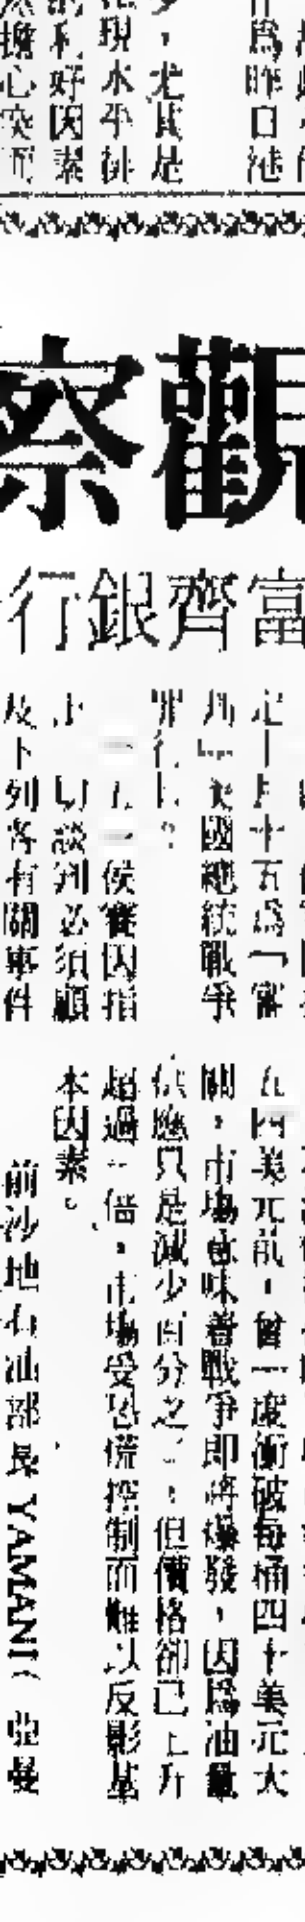 爲昨日港
少，尤其是
現水平徘
的利好因素
擔心突而
觀察
富齊銀行
定十月十五爲「審
判」美國總統戰爭
罪行日？
一五一侯賽因指
出一切談判必須顧
及下列各有關事件
五四美元前，曾一度衝破每桶四十美元大
關，市場意味着戰爭即將爆發，因爲油量
供應只是減少百分之二，但價格卻已上升
超過一倍，市場受恐慌控制而難以反影基
本因素。
前沙地石油部長YAMANI（亞曼